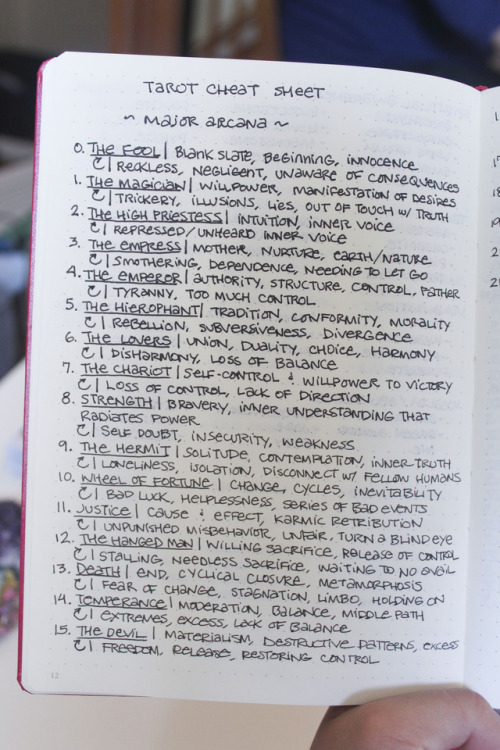 TAROT CHEAT SHEET
~ MAJOR ARCANA ~
0. THE FOOL | BLANK SLATE, BEGINNING, INNOCENCE
↻ | RECKLESS, NEGLIGENT, UNAWARE OF CONSEQUENCES
1. THE MAGICIAN | WILLPOWER, MANIFESTATION OF DESIRES
↻ | TRICKERY, ILLUSIONS, LIES, OUT OF TOUCH W/ TRUTH
2. THE HIGH PRIESTESS | INTUITION, INNER VOICE
↻ | REPRESSED/UNHEARD INNER VOICE
3. THE EMPRESS | MOTHER, NURTURE, EARTH/NATURE
↻ | SMOTHERING, DEPENDENCE, NEEDING TO LET GO
4. THE EMPEROR | AUTHORITY, STRUCTURE, CONTROL, FATHER
↻ | TYRANNY, TOO MUCH CONTROL
5. THE HIEROPHANT | TRADITION, CONFORMITY, MORALITY
↻ | REBELLION, SUBVERSIVENESS, DIVERGENCE
6. THE LOVERS | UNION, DUALITY, CHOICE, HARMONY
↻ | DISHARMONY, LOSS OF BALANCE
7. THE CHARIOT | SELF-CONTROL & WILLPOWER TO VICTORY
↻ | LOSS OF CONTROL, LACK OF DIRECTION
8. STRENGTH | BRAVERY, INNER UNDERSTANDING THAT
RADIATES POWER
↻ | SELF DOUBT, INSECURITY, WEAKNESS
9. THE HERMIT | SOLITUDE, CONTEMPLATION, INNER TRUTH
↻ | LONELINESS, ISOLATION, DISCONNECT W/ FELLOW HUMANS
10. WHEEL OF FORTUNE | CHANGE, CYCLES, INEVITABILITY
↻ | BAD LUCK, HELPLESSNESS, SERIES OF BAD EVENTS
11. JUSTICE | CAUSE & EFFECT, KARMIC RETRIBUTION
↻ | UNPUNISHED MISBEHAVIOR, UNFAIR, TURN A BLIND EYE
12. THE HANGED MAN | WILLING SACRIFICE, RELEASE OF CONTROL
↻ | STALLING, NEEDLESS SACRIFICE, WAITING TO NO AVAIL
13. DEATH | END, CYCLICAL CLOSURE, METAMORPHOSIS
↻ | FEAR OF CHANGE, STAGNATION, LIMBO, HOLDING ON
14. TEMPERANCE | MODERATION, BALANCE, MIDDLE PATH
↻ | EXTREMES, EXCESS, LACK OF BALANCE
15. THE DEVIL | MATERIALISM, DESTRUCTIVE PATTERNS, EXCESS
↻ | FREEDOM, RELEASE, RESTORING CONTROL
12